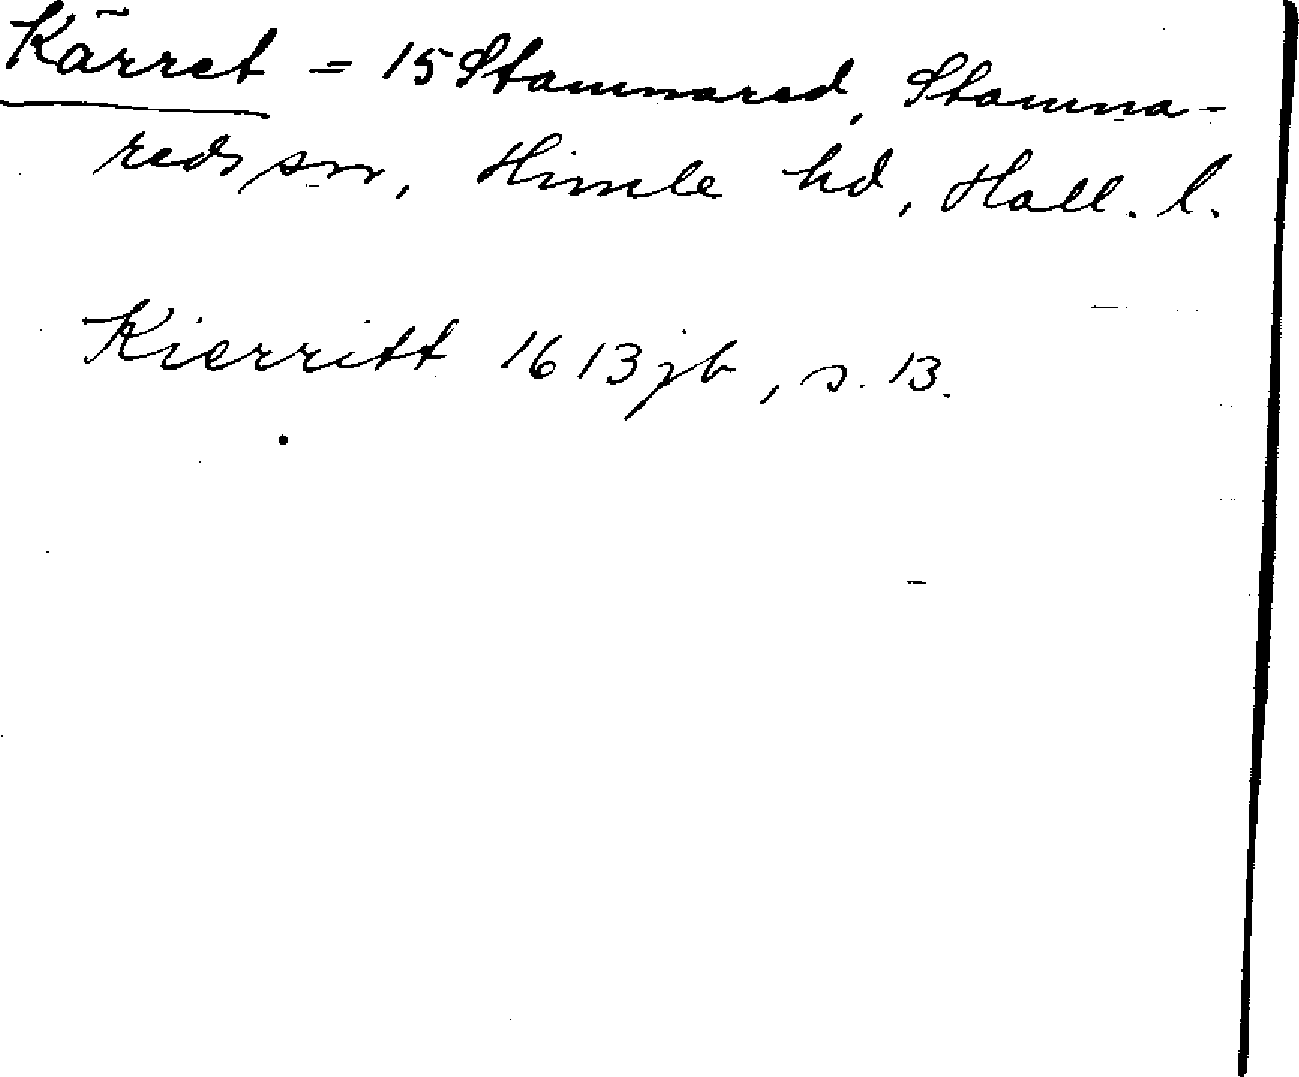 Kärret = 15 Stamnared, Stamna-
reds sn, Himle hd, Hall. l.
Kierritt 1613 jb, s. 13.